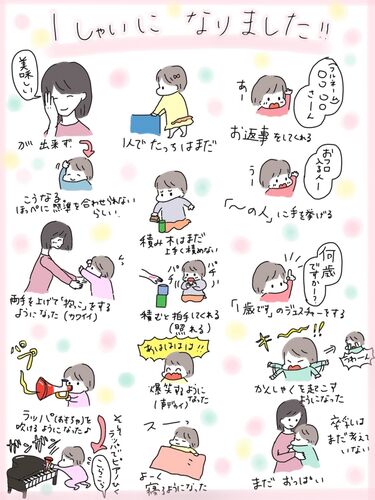 1しゃいに なりました!!
美味しい
が 出来ず
こうなる
ほっぺに照準を合わせられない
らしい
両手を上げて"抱っこ"をする
ようになった(カワイイ)
パァー
ラッパ(おもちゃ)を
吹けるようになったよ
ガンガン
1人でたっちはまだ
積み木はまだ
上手く積めない
パチ
パチ
積むと拍手してくれる
(照れる)
あはははは!!
爆笑するように
なった
スーッ
よーく
寝るようになった
(フルネーム)
〇〇〇〇
さーん
あー
お返事をしてくれる
おフロ
入る人ー
うー
「〜の人」に手を挙げる
何歳
ですかー?
「1歳です」のジェスチャーをする
かんしゃくを起こす
ようになった
卒乳は
まだ考えて
いない
まだ おっぱい